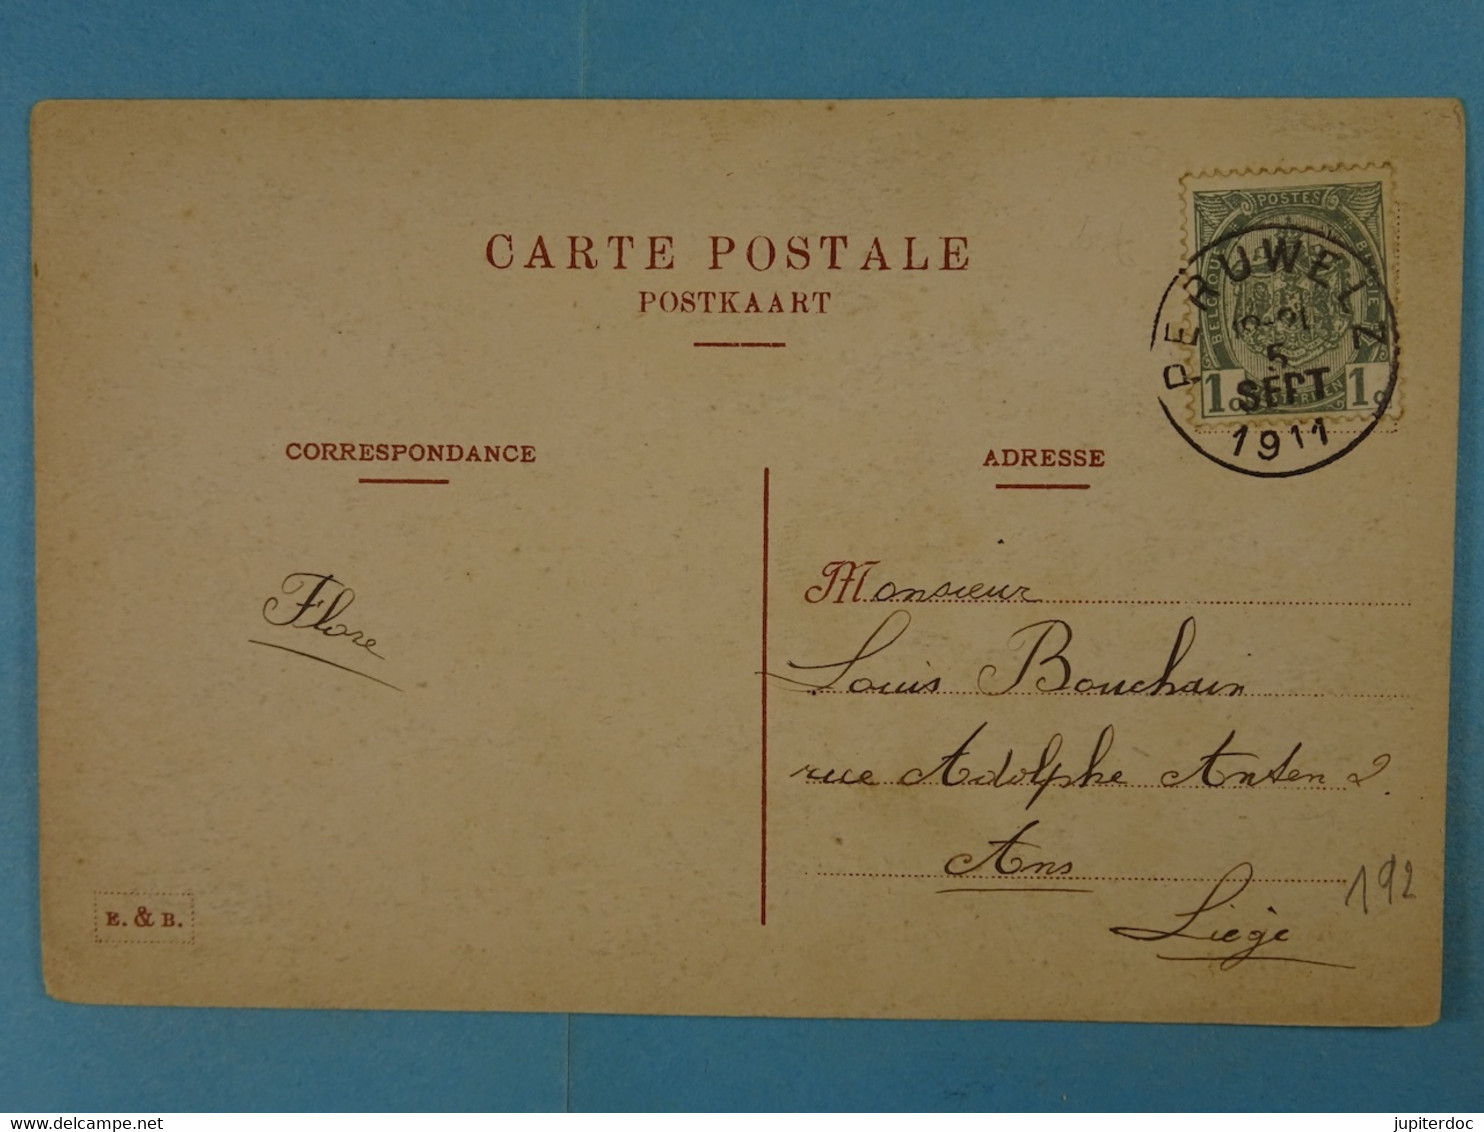 CARTE POSTALE
POSTKAART
CORRESPONDANCE
ADRESSE
POSTES
1 c 1 c
PERUWELZ
5
SEPT
1911
Flore
Monsieur
Louis Bouchain
rue Adolphe Anten 2
Ans
Liège
192
E. & B.
delcampe.net
jupiterdoc